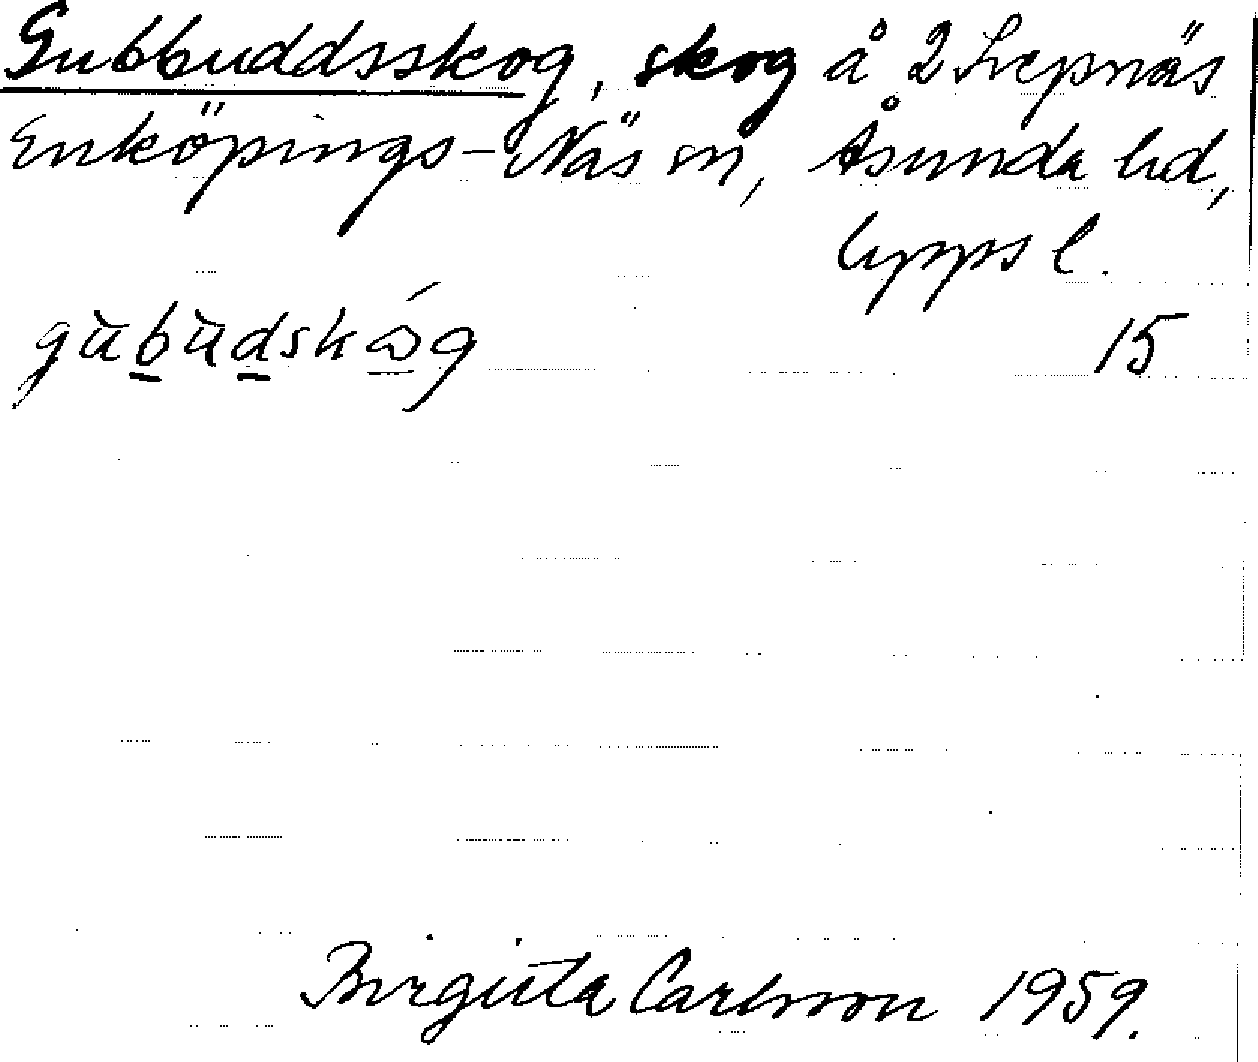 Gubbuddsskog, skog å 2 Svepnäs
Enköpings-Näs sn, Åsunda hd,
Upps l.
gùbùdskóg 15
Birgitta Carlsson 1959.